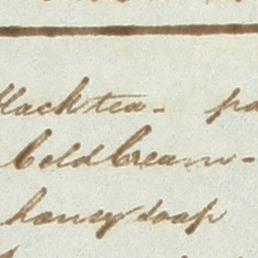 Black tea - pa
Cold Cream -
honey soap